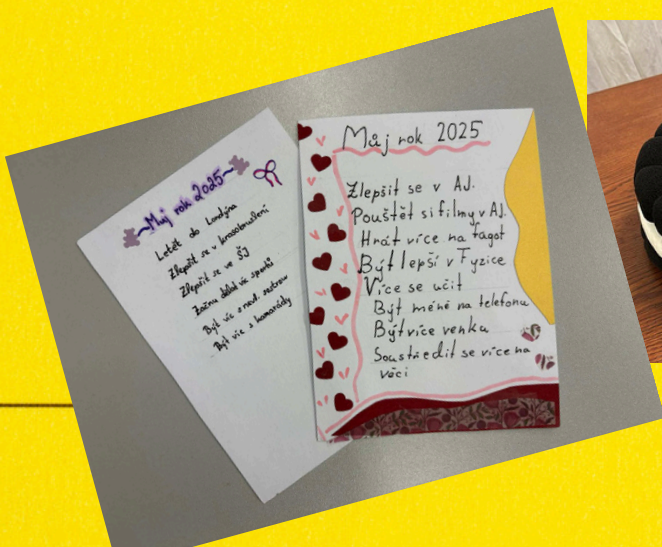 ~Můj rok 2025~
Letět do Londýna
Zlepšit se v krasobruslení
Zlepšit se ve ŠJ
Začnu dělat víc sportů
Být víc s nevl. sestrou
Být víc s kamarády
Můj rok 2025
Zlepšit se v AJ.
Pouštět si filmy v AJ.
Hrát více na fagot
Být lepší v Fyzice
Více se učit
Být méně na telefonu
Být více venku
Soustředit se více na
věci